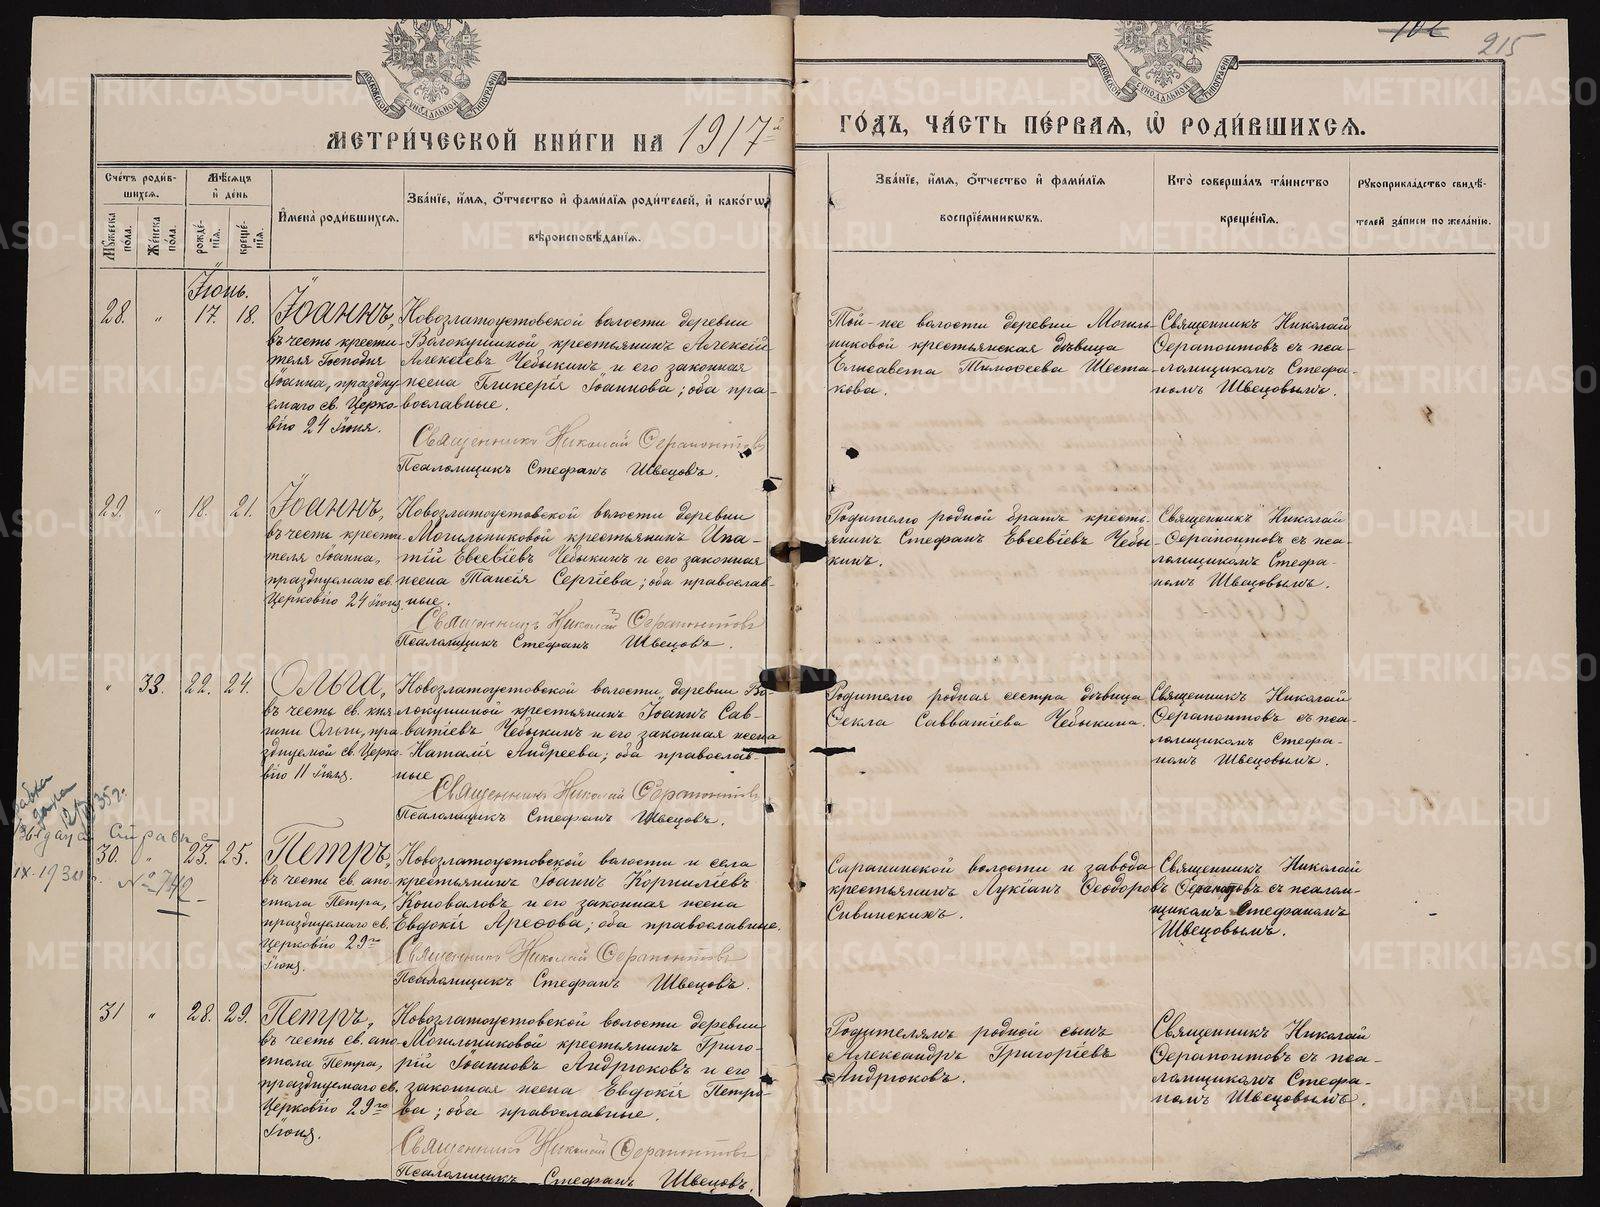 215
МЕТРИ́ЧЕСКОЙ КНИ́ГИ НА 1917й
ГО́ДЪ, ЧА́СТЬ ПЕ́РВАЯ, Ѽ РОДИ́ВШИХСЯ.
Сче́тъ роди́в-
шихся.
Мѣ́сяцъ
и҆ де́нь
Мꙋ́жеска по́ла.
Же́нска по́ла.
рожде́-
нїя.
креще́-
нїя.
И҆мена̀ роди́вшихся.
Зва́нїе, и҆́мя, ѻ҆́тчество и҆ фами́лїя роди́телей, и҆ како́гѡ
вѣроисповѣ́данїя.
Зва́нїе, и҆́мя, ѻ҆́тчество и҆ фами́лїя
воспрїе́мникѡвъ.
Кто̀ соверша́лъ та́инство
креще́нїя.
Рꙋкоприкла́дство свидѣ́-
телей за́писи по жела́нїю.
Іюнь.
28. " 17. 18.
Іоаннъ,
въ честь крести-
теля Господня
Іоанна, праздну-
емаго св. Церко-
вію 24 Іюня.
Новозлатоустовской волости деревни
Волокушиной крестьянинъ Алексій
Алексіевъ Чебыкинъ и его законная
жена Гликерія Іоаннова; оба пра-
вославные.
Священникъ Николай Ѳерапонтовъ
Псаломщикъ Стефанъ Швецовъ.
Той-же волости деревни Могиль-
никовой крестьянская дѣвица
Елисавета Тимоѳеева Шеста-
кова.
Священникъ Николай
Ѳерапонтовъ съ пса-
ломщикомъ Стефа-
номъ Швецовымъ.
29. " 18. 21.
Іоаннъ,
въ честь крести-
теля Іоанна,
празднуемаго св.
Церковію 24 Іюня.
Новозлатоустовской волости деревни
Могильниковой крестьянинъ Ипа-
тій Евсевіевъ Чебыкинъ и его законная
жена Таисія Сергіева; оба православ-
ные.
Священникъ Николай Ѳерапонтовъ
Псаломщикъ Стефанъ Швецовъ.
Родителю родной братъ кресть-
янинъ Стефанъ Евсевіевъ Чебы-
кинъ.
Священникъ Николай
Ѳерапонтовъ съ пса-
ломщикомъ Стефа-
номъ Швецовымъ.
" 33. 22. 24.
Ольга,
въ честь св. кня-
гини Ольги, пра-
зднуемой св. Церко-
вію 11 Іюля.
Новозлатоустовской волости деревни Во-
локушиной крестьянинъ Іоаннъ Сав-
ватіевъ Чебыкинъ и его законная жена
Наталія Андреева; оба православ-
ные
Священникъ Николай Ѳерапонтовъ
Псаломщикъ Стефанъ Швецовъ.
Родителю родная сестра дѣвица
Ѳекла Савватіева Чебыкина.
Священникъ Николай
Ѳерапонтовъ съ пса-
ломщикомъ Стефа-
номъ Швецовымъ.
35г.
IX-193
№ 742
30. " 23. 25.
Петръ,
въ честь св. апо-
стола Петра,
празднуемаго св.
Церковію 29го
Іюня.
Новозлатоустовской волости и села
крестьянинъ Іоаннъ Корниліевъ
Коноваловъ и его законная жена
Евдокія Ареѳова; оба православные.
Священникъ Николай Ѳерапонтовъ
Псаломщикъ Стефанъ Швецовъ.
Саранинской волости и завода
крестьянинъ Лукіанъ Ѳеодоровъ
Сивинскихъ.
Священникъ Николай
Ѳерапонтовъ съ псалом-
щикомъ Стефаномъ
Швецовымъ.
31 " 28. 29.
Петръ,
въ честь св. апо-
стола Петра,
празднуемаго св.
Церковію 29го
Іюня.
Новозлатоустовской волости деревни
Могильниковой крестьянинъ Григо-
рій Іоанновъ Андрюковъ и его
законная жена Евдокія Петро-
ва; оба православные.
Священникъ Николай Ѳерапонтовъ
Псаломщикъ Стефанъ Швецовъ.
Родителямъ родной сынъ
Александръ Григоріевъ
Андрюковъ.
Священникъ Николай
Ѳерапонтовъ съ пса-
ломщикомъ Стефа-
номъ Швецовымъ.
METRIKI.GASO-URAL.RU